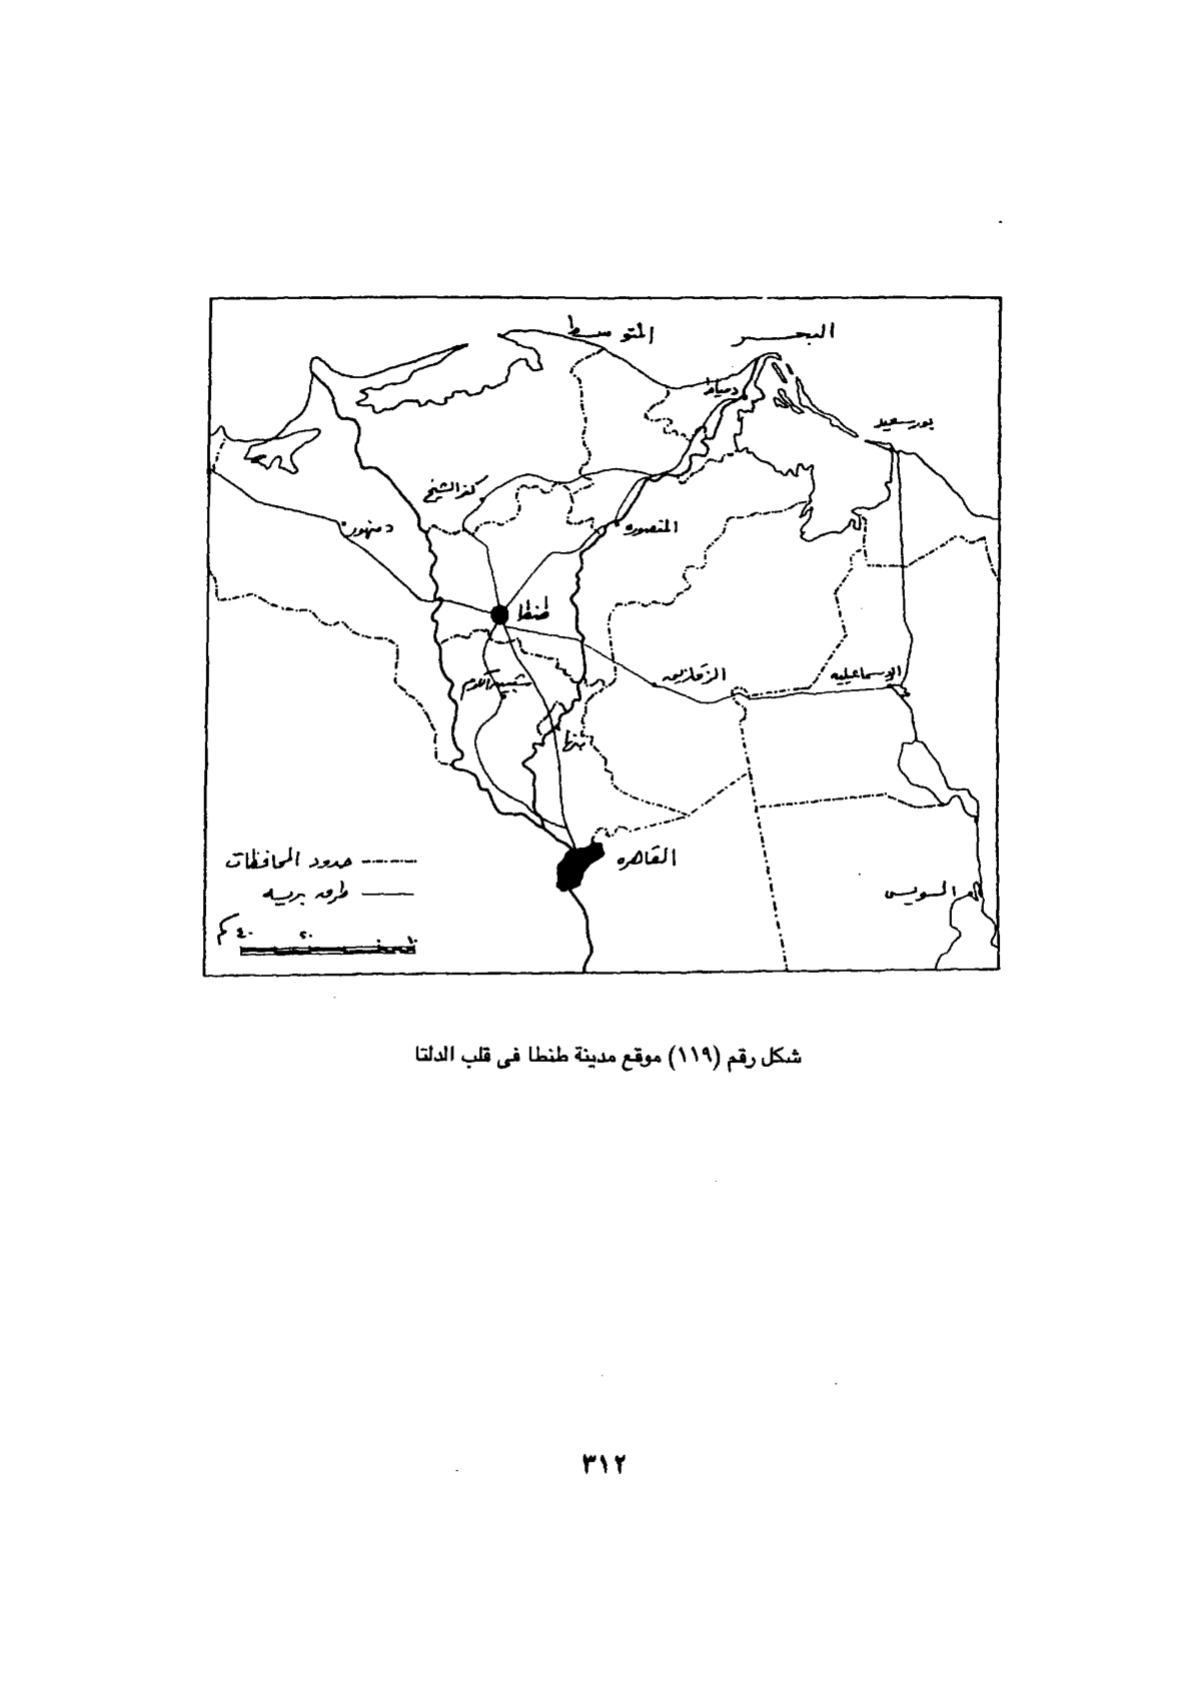 البحر المتوسط
دمياط
بورسعيد
كفر الشيخ
دمنهور
المنصوره
طنطا
الزقازيق
الإسماعيليه
شبين الكوم
بنها
القاهره
السويس
حدود المحافظات
طرق بريه
٤٠ كم
٢٠
٠
١٠
شكل رقم (١١٩) موقع مدينة طنطا فى قلب الدلتا
٣١٢